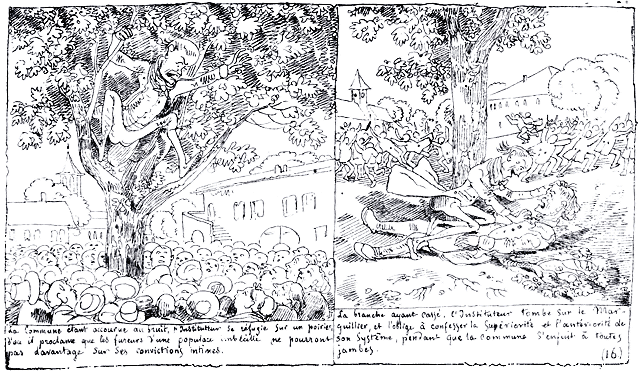 La Commune étant accourue au bruit, l'Instituteur se réfugie sur un poirier,
d'où il proclame que les fureurs d'une populace imbécille ne pourront
pas davantage sur ses convictions intimes.
La branche ayant cassé, l'Instituteur tombe sur le Mar-
guillier, et l'oblige à confesser la Supériorité et l'antériorité de
son Système, pendant que la Commune s'enfuit à toutes
jambes.
(16)